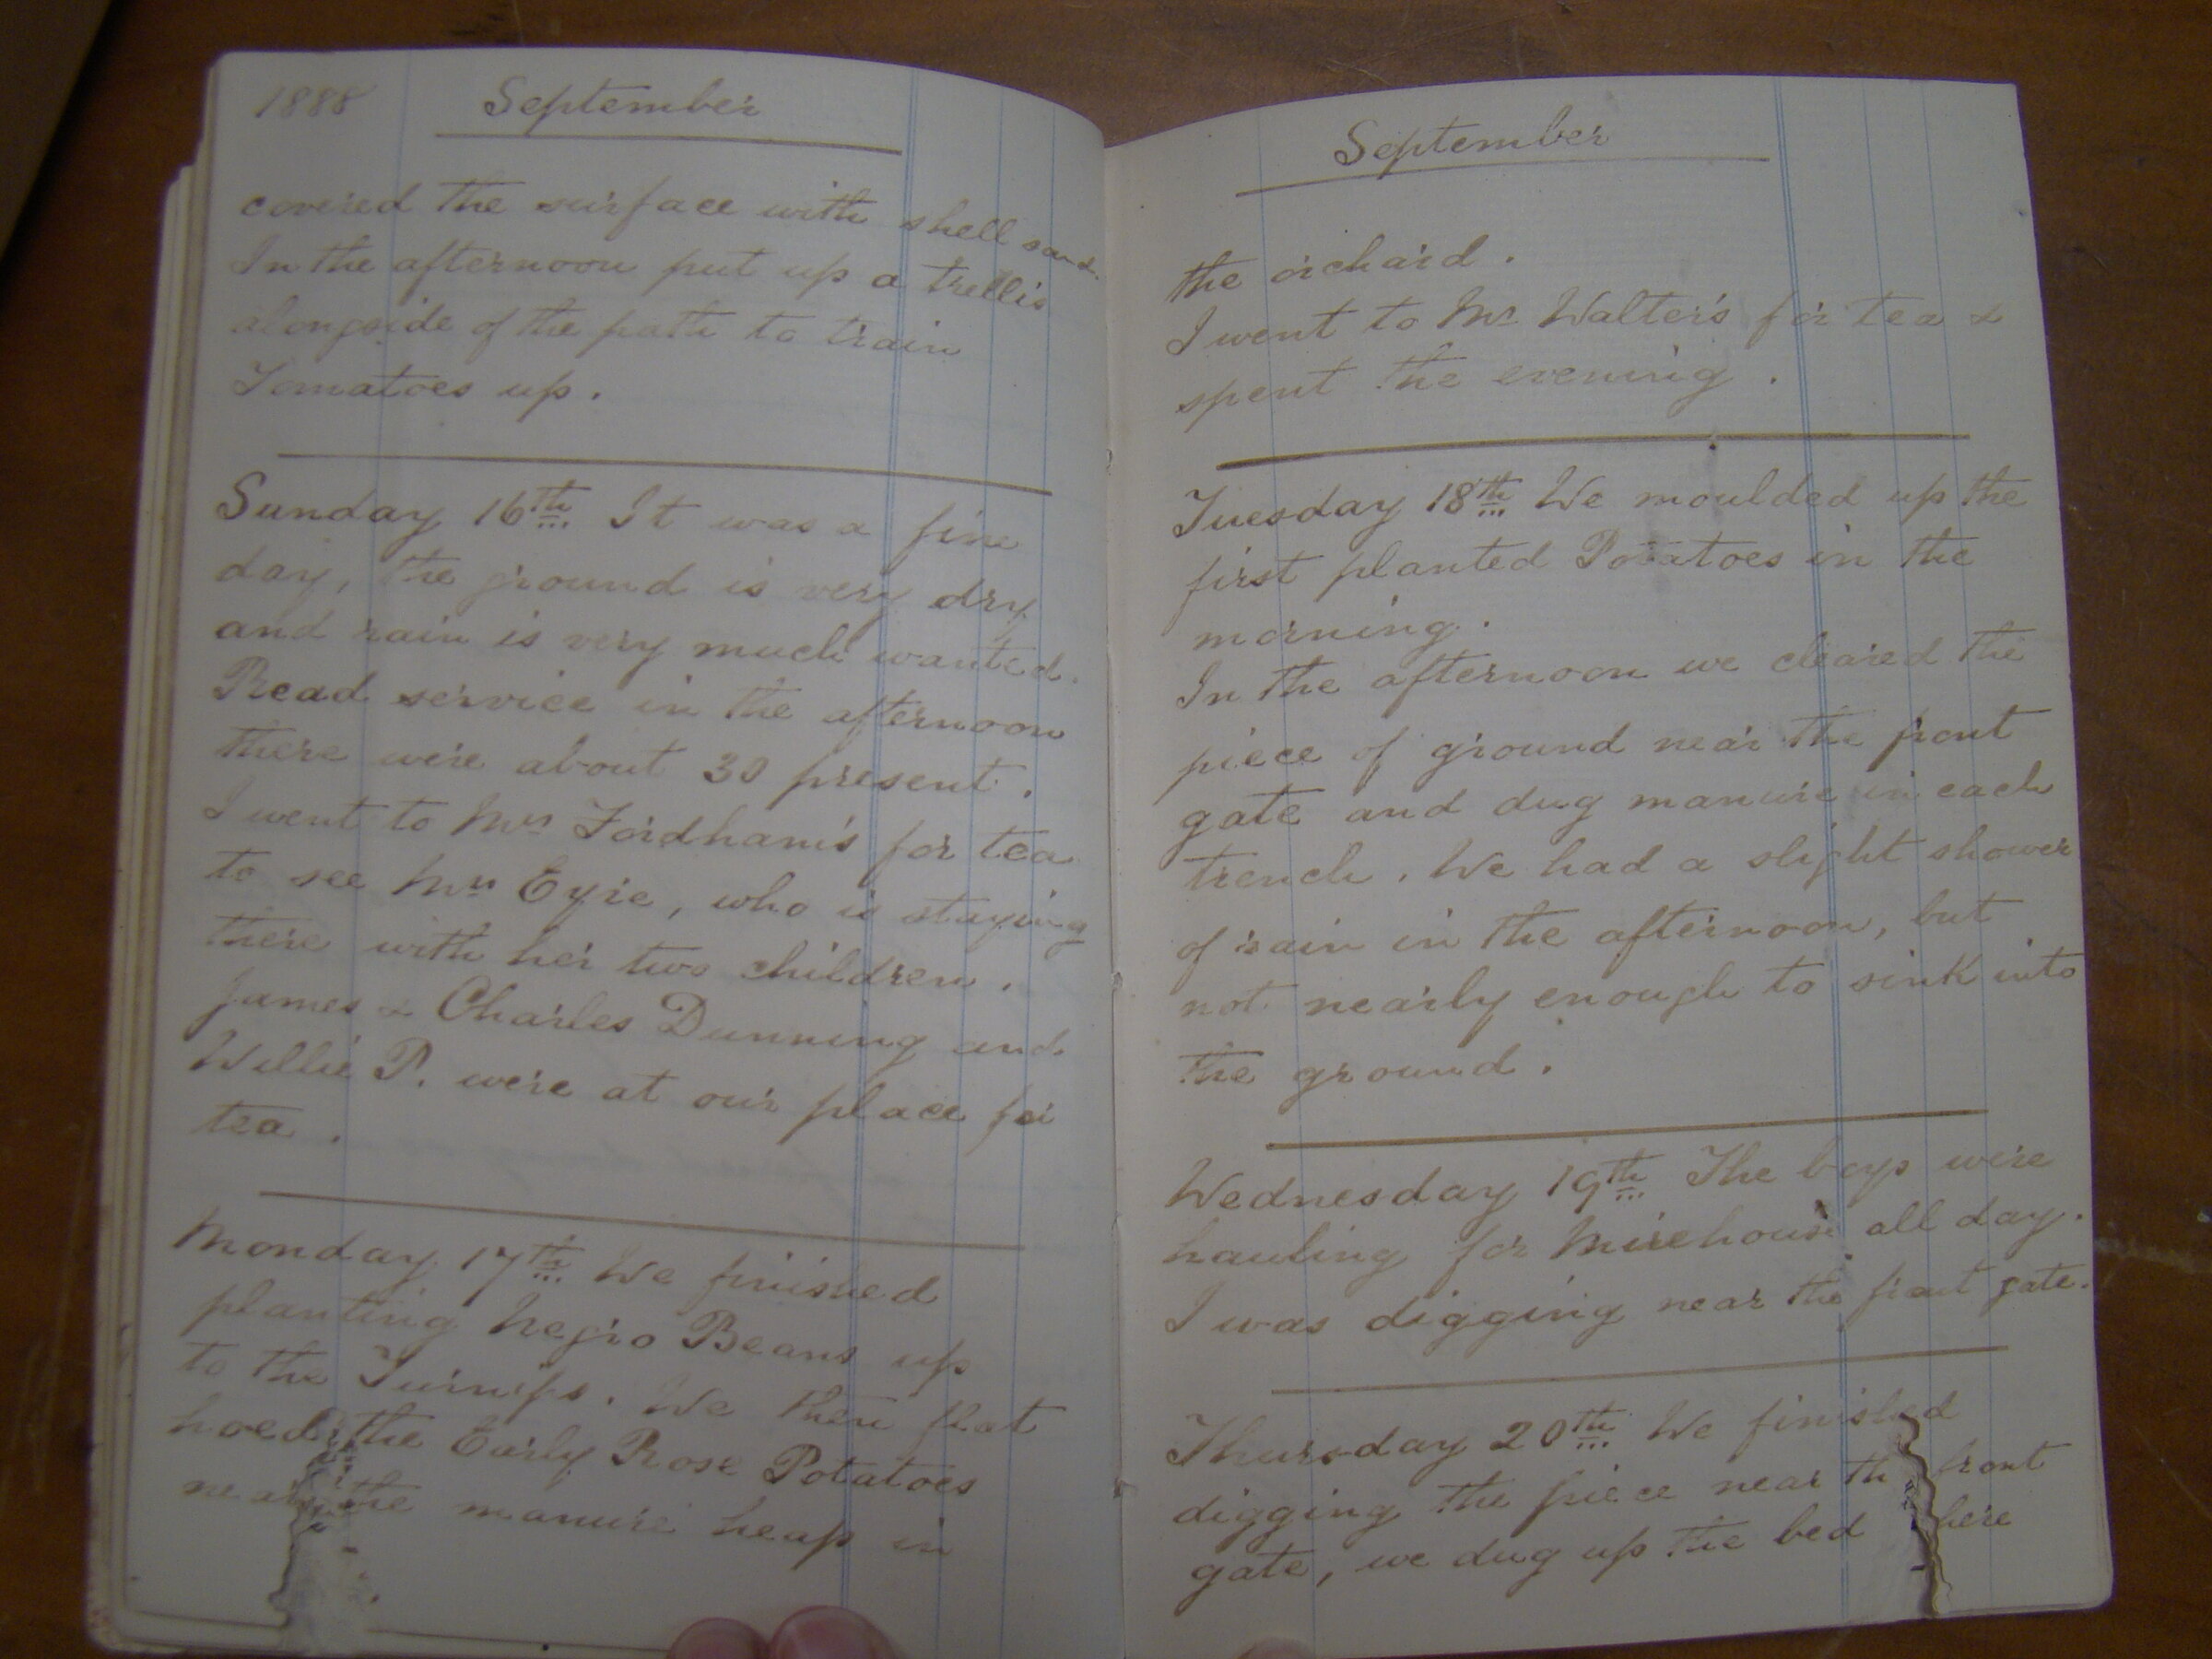 1888 September
covered the surface with shell sand.
In the afternoon put up a trellis
alongside of the path to train
Tomatoes up.
Sunday 16th It was a fine
day, the ground is very dry
and rain is very much wanted.
Read service in the afternoon
there were about 30 present.
I went to Mrs Fordham's for tea
to see Mrs Eyre, who is staying
there with her two children.
James & Charles Dunning and
Willie P. were at our place for
tea.
Monday 17th We finished
planting Negro Beans up
to the Turnips. We then flat
hoed the Early Rose Potatoes
near the manure heap in
September
the orchard.
I went to Mr Walter's for tea &
spent the evening.
Tuesday 18th We moulded up the
first planted Potatoes in the
morning.
In the afternoon we cleared the
piece of ground near the front
gate and dug manure in each
trench. We had a slight shower
of rain in the afternoon, but
not nearly enough to sink into
the ground.
Wednesday 19th The boys were
hauling for Mirehouse all day.
I was digging near the front gate.
Thursday 20th We finished
digging the piece near the front
gate, we dug up the bed where